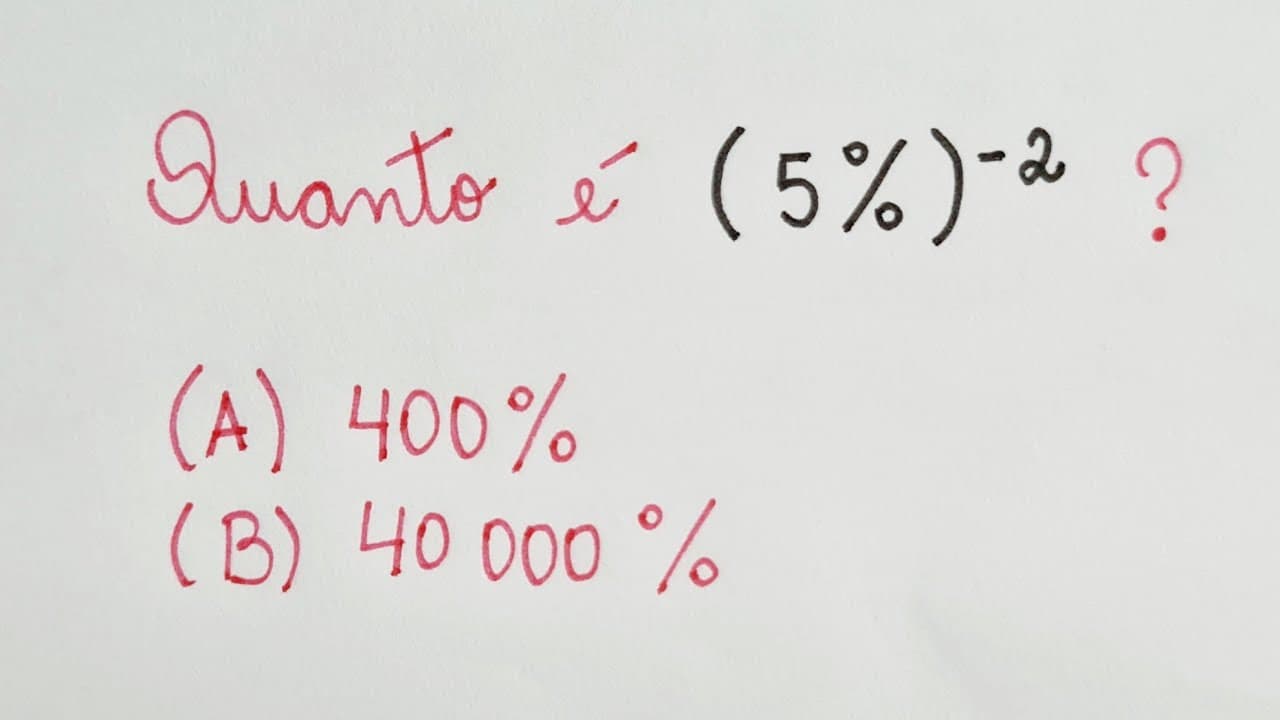 Quanto é (5%)⁻² ?
(A) 400%
(B) 40 000 %